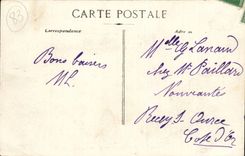 83
CARTE POSTALE
Correspondance
Adresse
Bons baisers
ML.
Melle G Lanaud
chez Mr Paillard
Nouveauté
Recey s. Ource
Cote d'Or